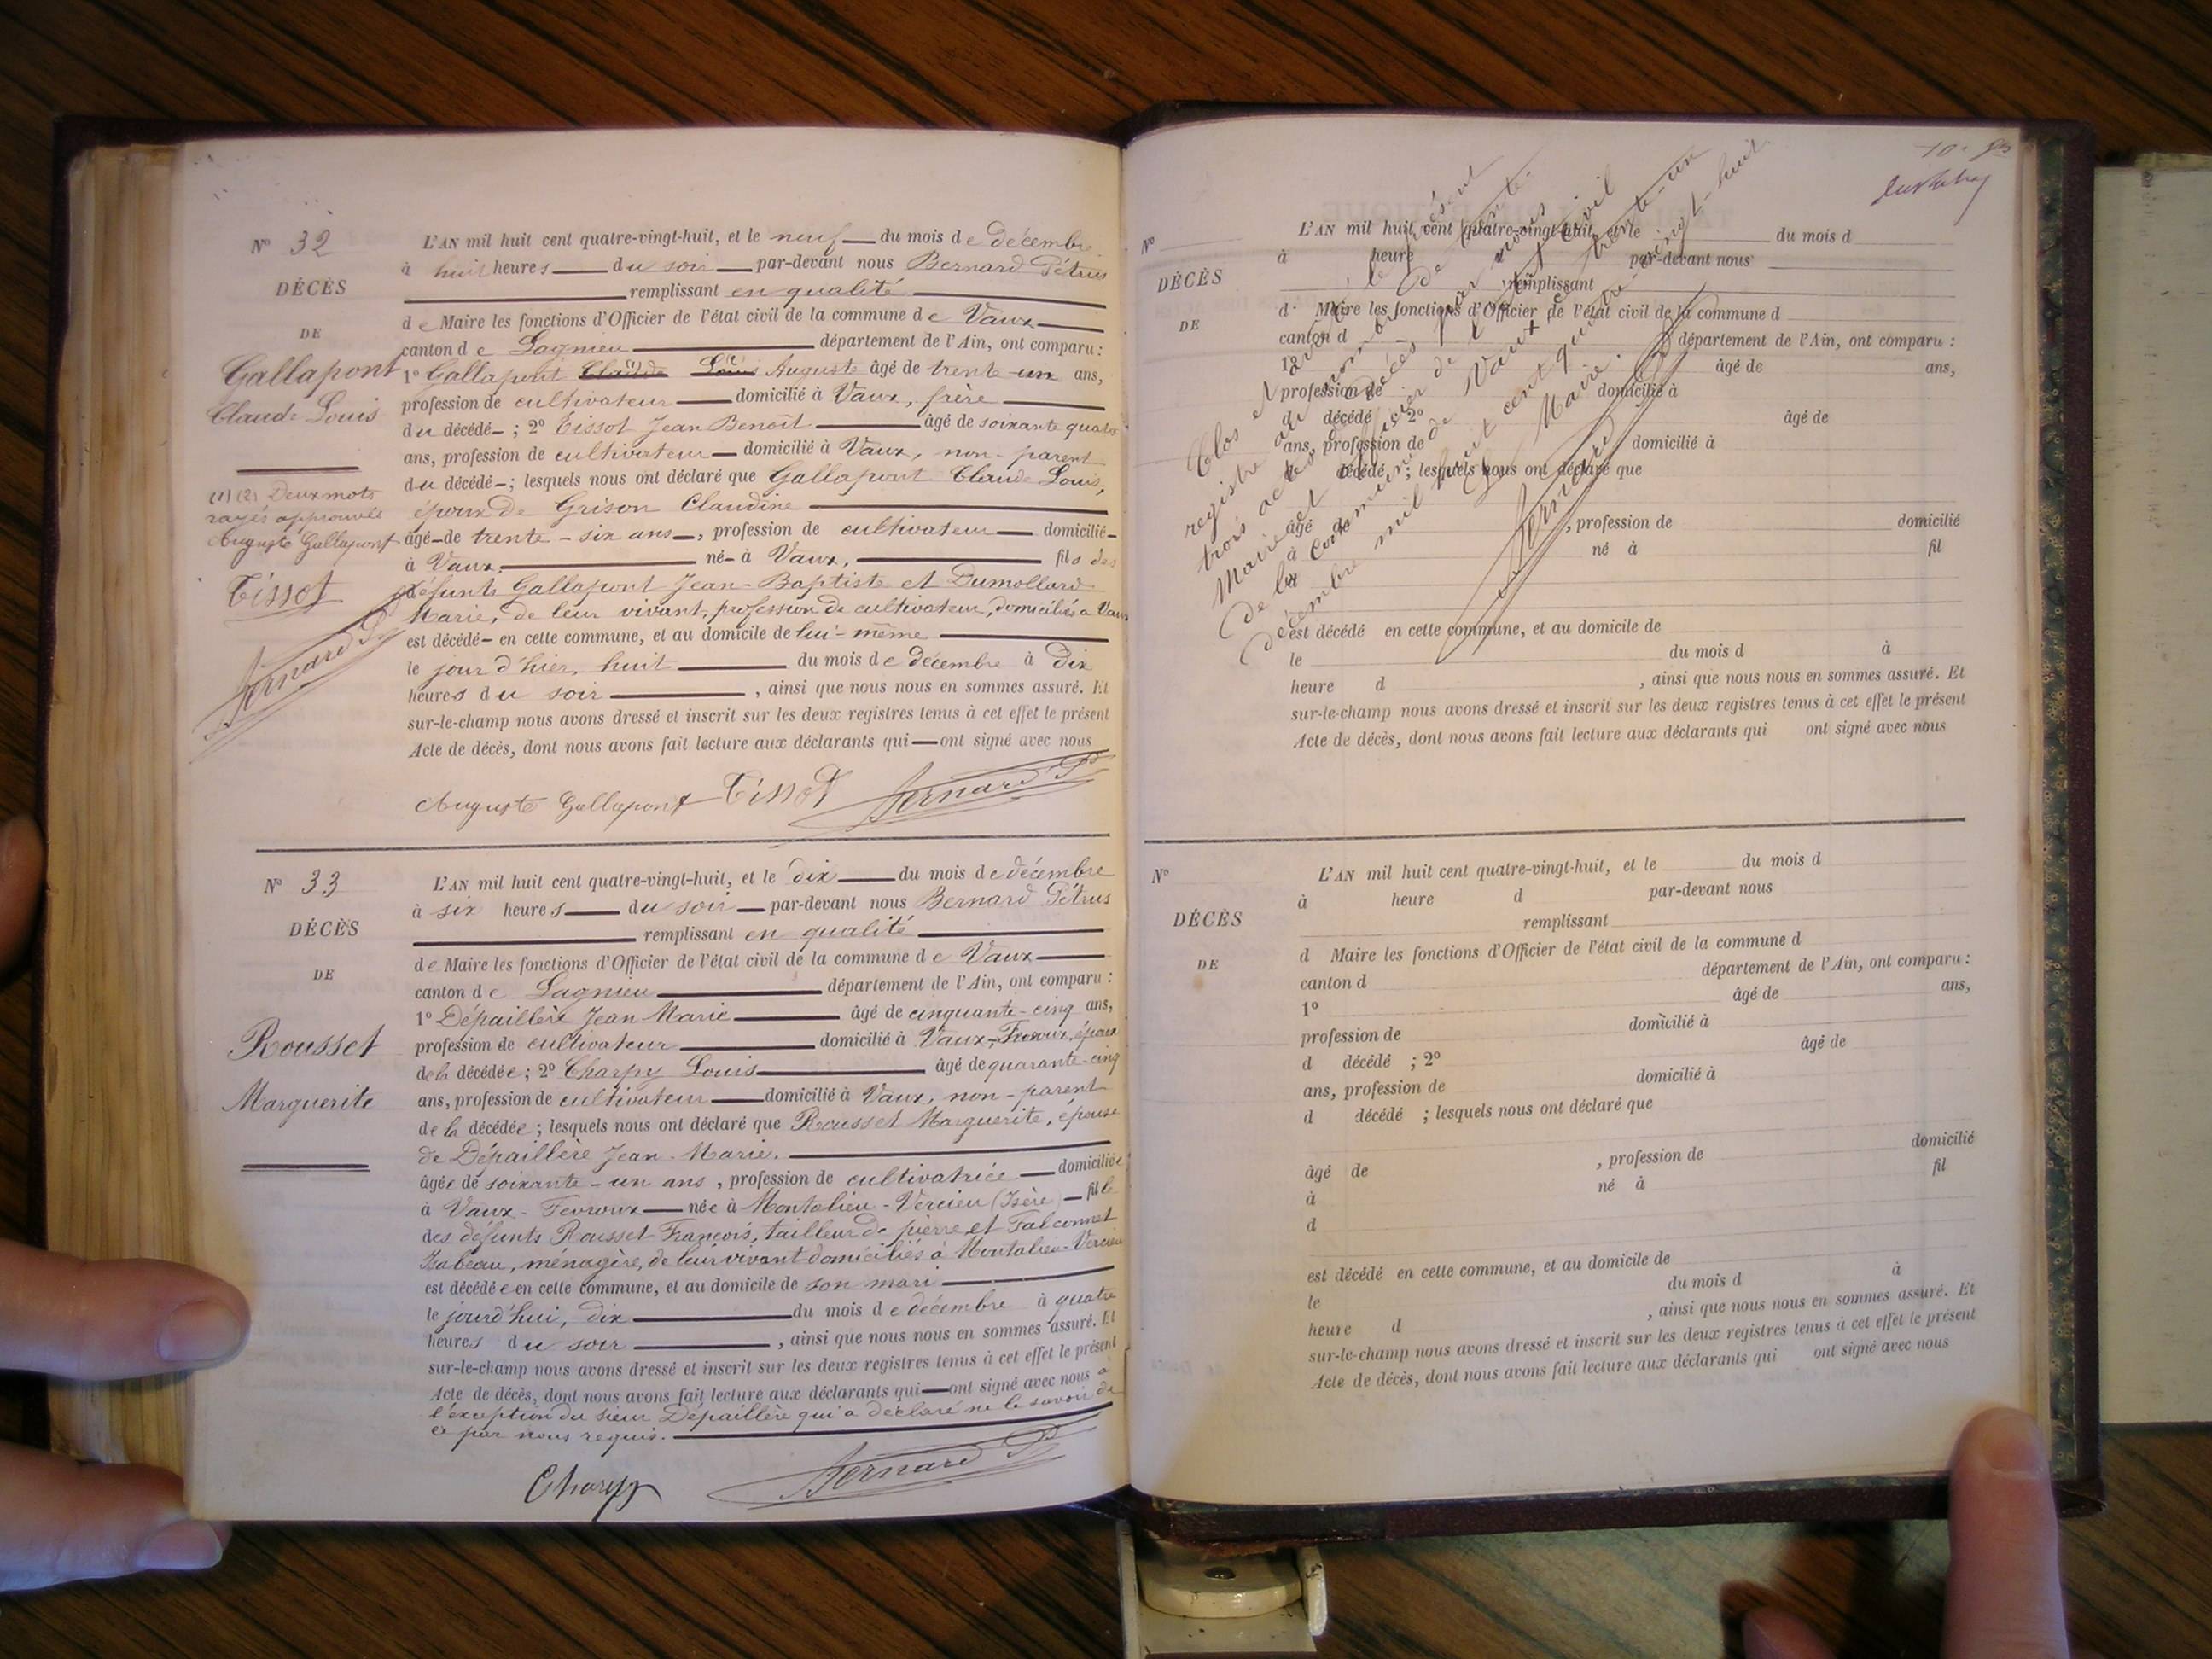 N° 32
DÉCÈS
DE
Gallapont
Claude Louis
(1) (2) Deux mots
rayés approuvés
Auguste Gallapont
Tissot
Bernard P
L'AN mil huit cent quatre-vingt-huit, et le neuf du mois de décembre
à huit heures du soir par-devant nous Bernard Pétrus
remplissant en qualité
de Maire les fonctions d'Officier de l'état civil de la commune de Vaux
canton de Lagnieu département de l'Ain, ont comparu :
1° Gallapont Claude Louis Auguste âgé de trente-un ans,
profession de cultivateur domicilié à Vaux, frère
du décédé ; 2° Tissot Jean Benoît âgé de soixante quatre
ans, profession de cultivateur domicilié à Vaux, non-parent
du décédé ; lesquels nous ont déclaré que Gallapont Claude Louis,
époux de Grison Claudine
âgé de trente-six ans, profession de cultivateur domicilié
à Vaux, né à Vaux, fils des
défunts Gallapont Jean-Baptiste et Dumollard
Marie, de leur vivant, profession de cultivateur, domiciliés à Vaux
est décédé en cette commune, et au domicile de lui-même
le jour d'hier, huit du mois de décembre à dix
heures du soir , ainsi que nous nous en sommes assuré. Et
sur-le-champ nous avons dressé et inscrit sur les deux registres tenus à cet effet le présent
Acte de décès, dont nous avons fait lecture aux déclarants qui ont signé avec nous
Auguste Gallapont Tissot Bernard P
N° 33
DÉCÈS
DE
Rousset
Marguerite
L'AN mil huit cent quatre-vingt-huit, et le dix du mois de décembre
à six heures du soir par-devant nous Bernard Pétrus
remplissant en qualité
de Maire les fonctions d'Officier de l'état civil de la commune de Vaux
canton de Lagnieu département de l'Ain, ont comparu :
1° Dépaillère Jean Marie âgé de cinquante-cinq ans,
profession de cultivateur domicilié à Vaux-Fevroux, époux
de la décédée ; 2° Charpy Louis âgé de quarante-cinq
ans, profession de cultivateur domicilié à Vaux, non-parent
de la décédée ; lesquels nous ont déclaré que Rousset Marguerite, épouse
de Dépaillère Jean-Marie.
âgée de soixante-un ans , profession de cultivatrice domiciliée
à Vaux-Fevroux née à Montalieu-Vercieu (Isère) fille
des défunts Rousset François, tailleur de pierre et Falconnet
Isabeau, ménagère, de leur vivant domiciliés à Montalieu-Vercieu
est décédée en cette commune, et au domicile de son mari
le jourd'hui, dix du mois de décembre à quatre
heures du soir , ainsi que nous nous en sommes assuré. Et
sur-le-champ nous avons dressé et inscrit sur les deux registres tenus à cet effet le présent
Acte de décès, dont nous avons fait lecture aux déclarants qui ont signé avec nous à
l'exception du sieur Dépaillère qui a déclaré ne le savoir de
ce par nous requis.
Charpy Bernard P
Clos et arrêté le présent
registre au nombre de trente-
trois actes de décès par nous
Maire et officier de l'état civil
de la Commune de Vaux, le trente-un
décembre mil huit cent quatre-vingt-huit.
Le Maire.
Bernard P
N°
DÉCÈS
DE
L'AN mil huit cent quatre-vingt-huit, et le du mois d
à heure par-devant nous
remplissant
d Maire les fonctions d'Officier de l'état civil de la commune d
canton d département de l'Ain, ont comparu :
1° âgé de ans,
profession de domicilié à
d décédé 2° âgé de
ans, profession de domicilié à
d décédé ; lesquels nous ont déclaré que
âgé de , profession de domicilié
à né à fil
d
est décédé en cette commune, et au domicile de
le du mois d à
heure d , ainsi que nous nous en sommes assuré. Et
sur-le-champ nous avons dressé et inscrit sur les deux registres tenus à cet effet le présent
Acte de décès, dont nous avons fait lecture aux déclarants qui ont signé avec nous
N°
DÉCÈS
DE
L'AN mil huit cent quatre-vingt-huit, et le du mois d
à heure d par-devant nous
remplissant
d Maire les fonctions d'Officier de l'état civil de la commune d
canton d département de l'Ain, ont comparu :
1° âgé de ans,
profession de domicilié à
d décédé ; 2° âgé de
ans, profession de domicilié à
d décédé ; lesquels nous ont déclaré que
âgé de , profession de domicilié
à né à fil
d
est décédé en cette commune, et au domicile de
le du mois d à
heure d , ainsi que nous nous en sommes assuré. Et
sur-le-champ nous avons dressé et inscrit sur les deux registres tenus à cet effet le présent
Acte de décès, dont nous avons fait lecture aux déclarants qui ont signé avec nous